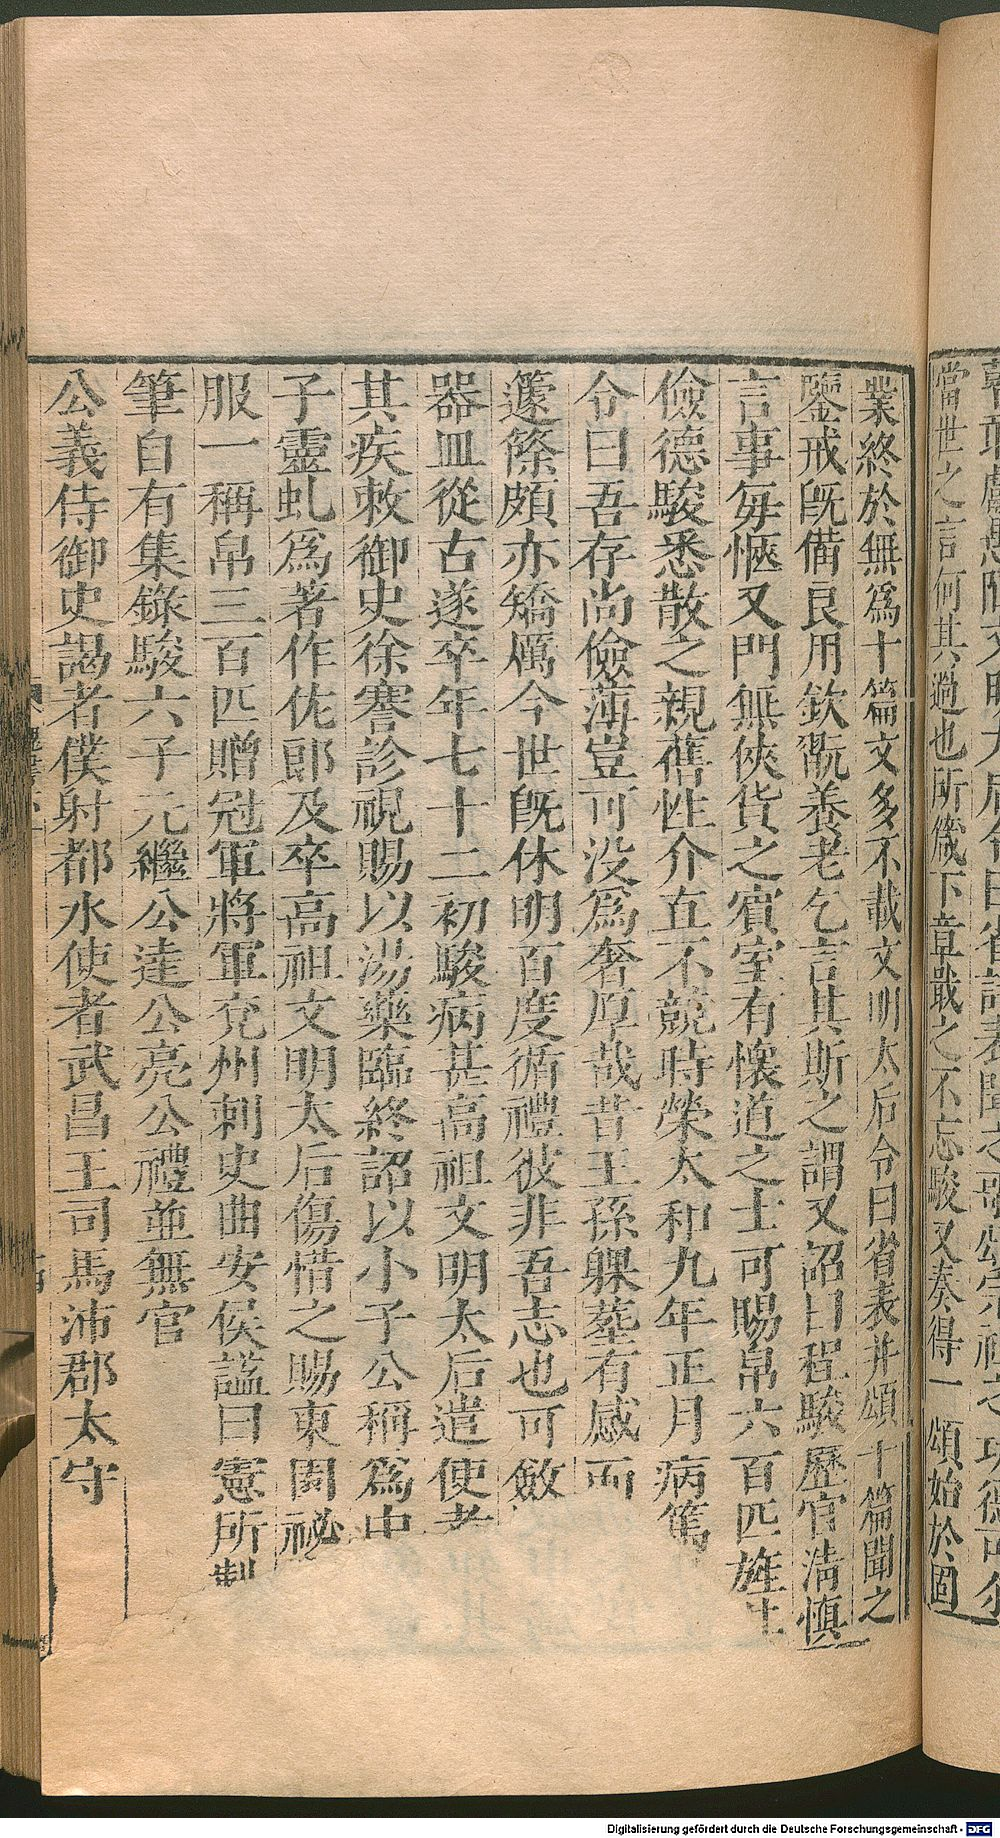 當世之言何其過也所箴下章戢之不忘駿又奏得一頌始於固
業終於無爲十篇文多不載文明太后令曰省表并頌十篇聞之
鑒戒旣備良用欽翫養老乞言其斯之謂又詔曰程駿歷官淸愼
言事每愜又門無俠貨之賓室有懷道之士可賜帛六百匹旌
儉德駿悉散之親舊性介直不競時榮太和九年正月病篤
令曰吾存尚儉薄豈可没爲奢厚哉昔王孫躶葬有感而
籧篨頗亦矯厲今世旣休明百度循禮彼非吾志也可斂
器皿從古遂卒年七十二初駿病甚高祖文明太后遣使者
其疾敕御史徐謇診視賜以湯藥臨終詔以小子公稱爲中
子靈虬爲著作佐郞及卒高祖文明太后傷惜之賜東園祕
服一稱帛三百匹贈冠軍將軍兗州刺史曲安侯諡曰憲所製
筆自有集錄駿六子元繼公達公亮公禮並無官
公義侍御史謁者僕射都水使者武昌王司馬沛郡太守
Digitalisierung gefördert durch die Deutsche Forschungsgemeinschaft - DFG